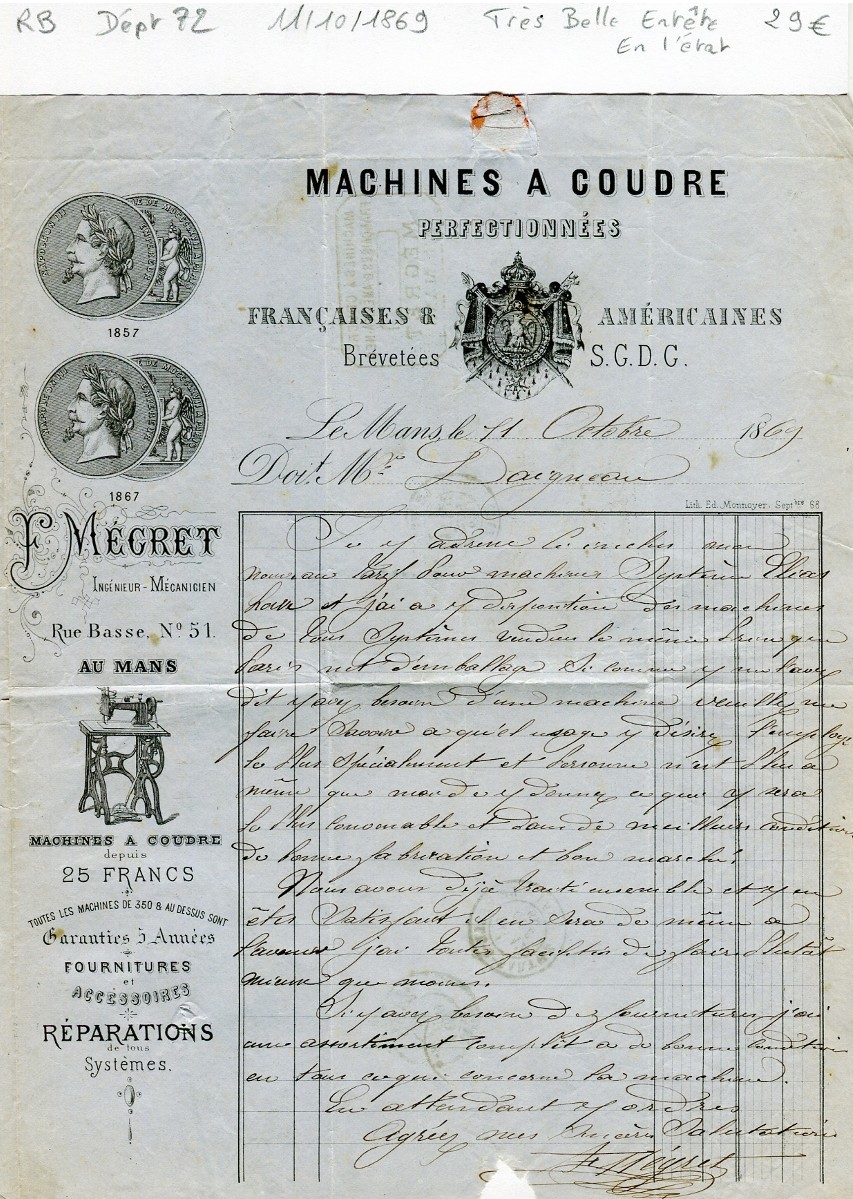 RB Dépt 72 11/10/1869 Très Belle Entête 29€
En l'état
MACHINES A COUDRE
PERFECTIONNÉES
FRANÇAISES & AMÉRICAINES
Brévetées S.G.D.G.
NAPOLEON III
1857
1867
F. MÉGRET
INGÉNIEUR-MÉCANICIEN
Rue Basse, Nº 51.
AU MANS
MACHINES A COUDRE
depuis
25 FRANCS
TOUTES LES MACHINES DE 350 & AU DESSUS SONT
Garanties 5 Années
FOURNITURES
et
ACCESSOIRES
RÉPARATIONS
de tous
Systèmes.
Le Mans, le 11 Octobre 1869
Doit Mr. Daigneau
Lith. Ed. Monnoyer. Septbre 68
Je v adresse ci inclus mon
nouveau tarif pour machines Système Elias
howe et j'ai a v disposition des machines
de tous Systèmes vendues le même prix que
Paris net d'emballage Si comme v me l'avez
dit v avez besoin d'une machine veuillez me
faire Savoir a quel usage v désirez l'employer
le plus Spécialement et personne n'est plus a
même que moi de v donner ce qui v sera
le plus convenable et dans de meilleurs conditions
de bonne fabrication et bon marché.
Nous avons déjà traité ensemble et v en
êtes Satisfait il en Sera de même a
l'avenir j'ai toutes facilités de faire plutôt
mieux que moins.
Si v avez besoin de fournitures j'ai
une assortiment complèt a de bonne condition
en tous ce qui concerne la machine.
En attendant v ordres
Agréez mes Sincères Salutations
F. Mégret